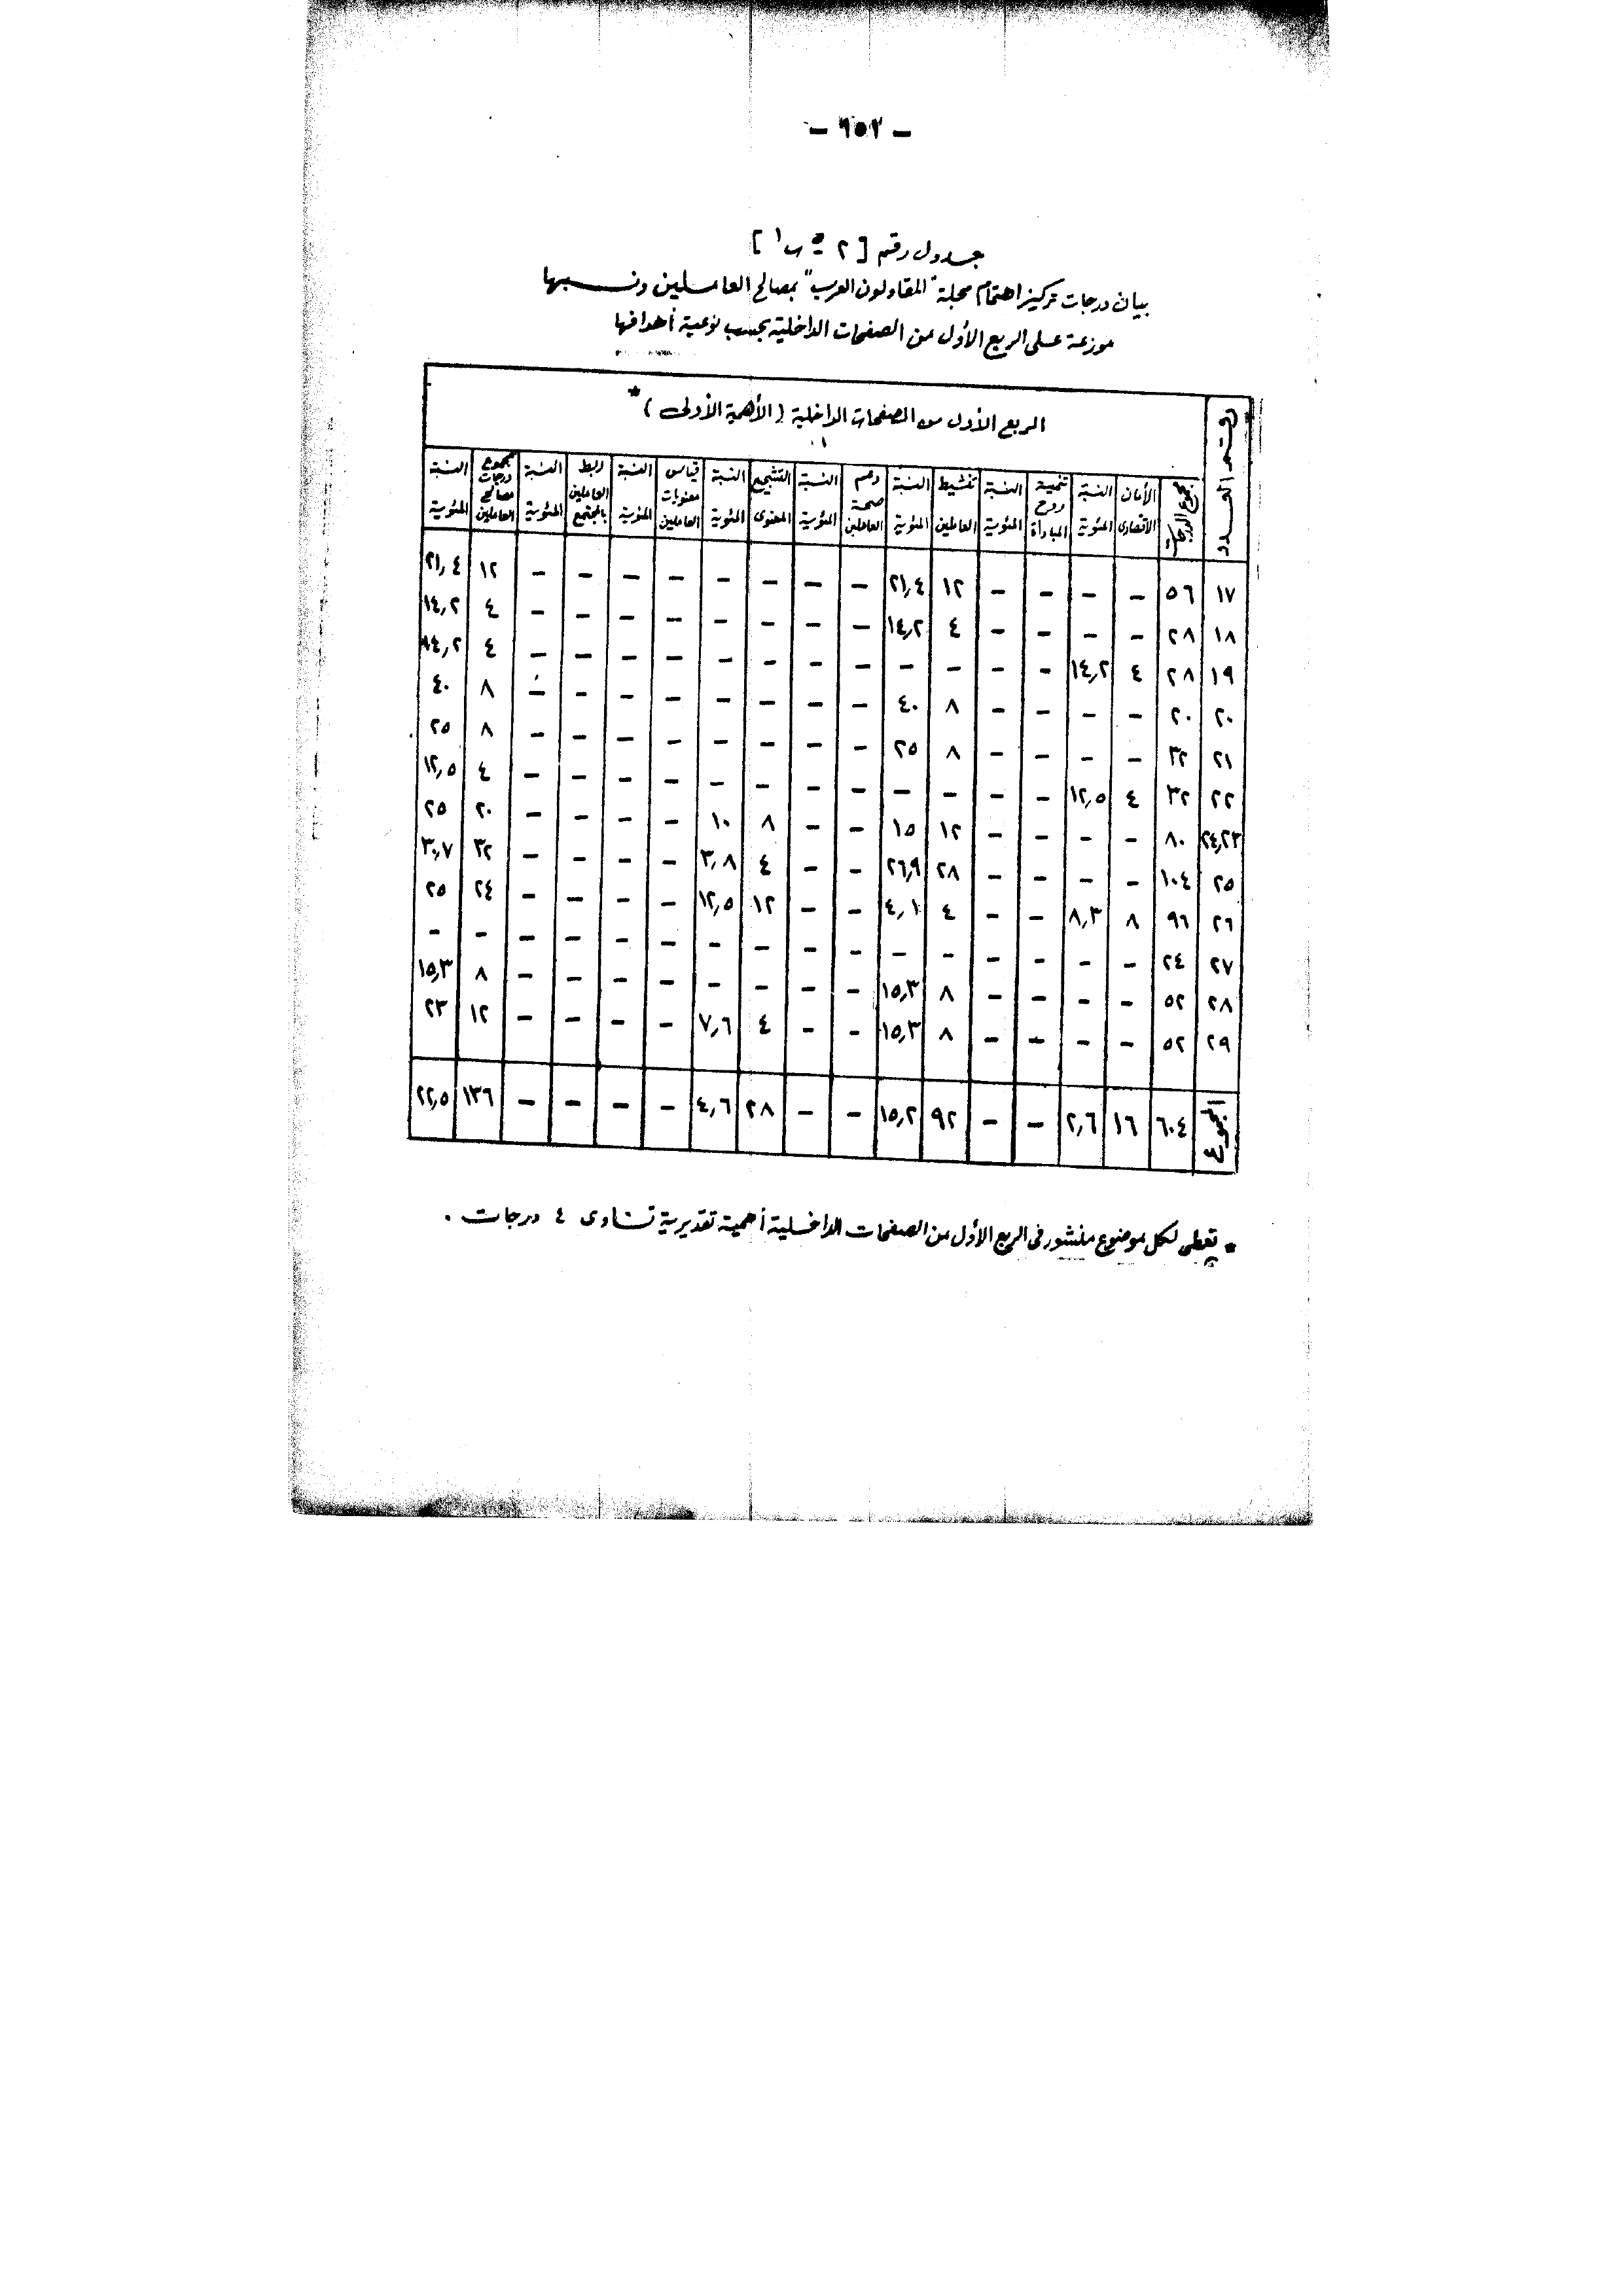 – ٩٥٢ –
جدول رقم [ ٢ هـ ب ١ ]
بيان درجات تركيز اهتمام مجلة "المقاولون العرب" بمصالح العاملين ونسبها
موزعة على الربع الأول من الصفحات الداخلية بحسب نوعية أهدافها
رقم العدد | الربع الأول من الصفحات الداخلية ( الأهمية الأولى ) *
مجموع الدرجات | الأمان الاقتصادى | النسبة المئوية | تنمية روح المبادأة | النسبة المئوية | تنشيط العاملين | النسبة المئوية | دعم صحة العاملين | النسبة المئوية | التشجيع المعنوى | النسبة المئوية | قياس معنويات العاملين | النسبة المئوية | ربط العاملين بالمجتمع | النسبة المئوية | مجموع درجات مصالح العاملين | النسبة المئوية
١٧ | ٥٦ | – | – | – | – | ١٢ | ٢١,٤ | – | – | – | – | – | – | – | – | ١٢ | ٢١,٤
١٨ | ٢٨ | – | – | – | – | ٤ | ١٤,٢ | – | – | – | – | – | – | – | – | ٤ | ١٤,٢
١٩ | ٢٨ | ٤ | ١٤,٢ | – | – | – | – | – | – | – | – | – | – | – | – | ٤ | ١٤,٢
٢٠ | ٢٠ | – | – | – | – | ٨ | ٤٠ | – | – | – | – | – | – | – | – | ٨ | ٤٠
٢١ | ٣٢ | – | – | – | – | ٨ | ٢٥ | – | – | – | – | – | – | – | – | ٨ | ٢٥
٢٢ | ٣٢ | ٤ | ١٢,٥ | – | – | – | – | – | – | – | – | – | – | – | – | ٤ | ١٢,٥
٢٤,٢٣ | ٨٠ | – | – | – | – | ١٢ | ١٥ | – | – | ٨ | ١٠ | – | – | – | – | ٢٠ | ٢٥
٢٥ | ١٠٤ | – | – | – | – | ٢٨ | ٢٦,٩ | – | – | ٤ | ٣,٨ | – | – | – | – | ٣٢ | ٣٠,٧
٢٦ | ٩٦ | ٨ | ٨,٣ | – | – | ٤ | ٤,١ | – | – | ١٢ | ١٢,٥ | – | – | – | – | ٢٤ | ٢٥
٢٧ | ٢٤ | – | – | – | – | – | – | – | – | – | – | – | – | – | – | – | –
٢٨ | ٥٢ | – | – | – | – | ٨ | ١٥,٣ | – | – | – | – | – | – | – | – | ٨ | ١٥,٣
٢٩ | ٥٢ | – | – | – | – | ٨ | ١٥,٣ | – | – | ٤ | ٧,٦ | – | – | – | – | ١٢ | ٢٣
المجموع | ٦٠٤ | ١٦ | ٢,٦ | – | – | ٩٢ | ١٥,٢ | – | – | ٢٨ | ٤,٦ | – | – | – | – | ١٣٦ | ٢٢,٥
* تعطى لكل موضوع منشور فى الربع الأول من الصفحات الداخلية أهمية تقديرية تساوى ٤ درجات .